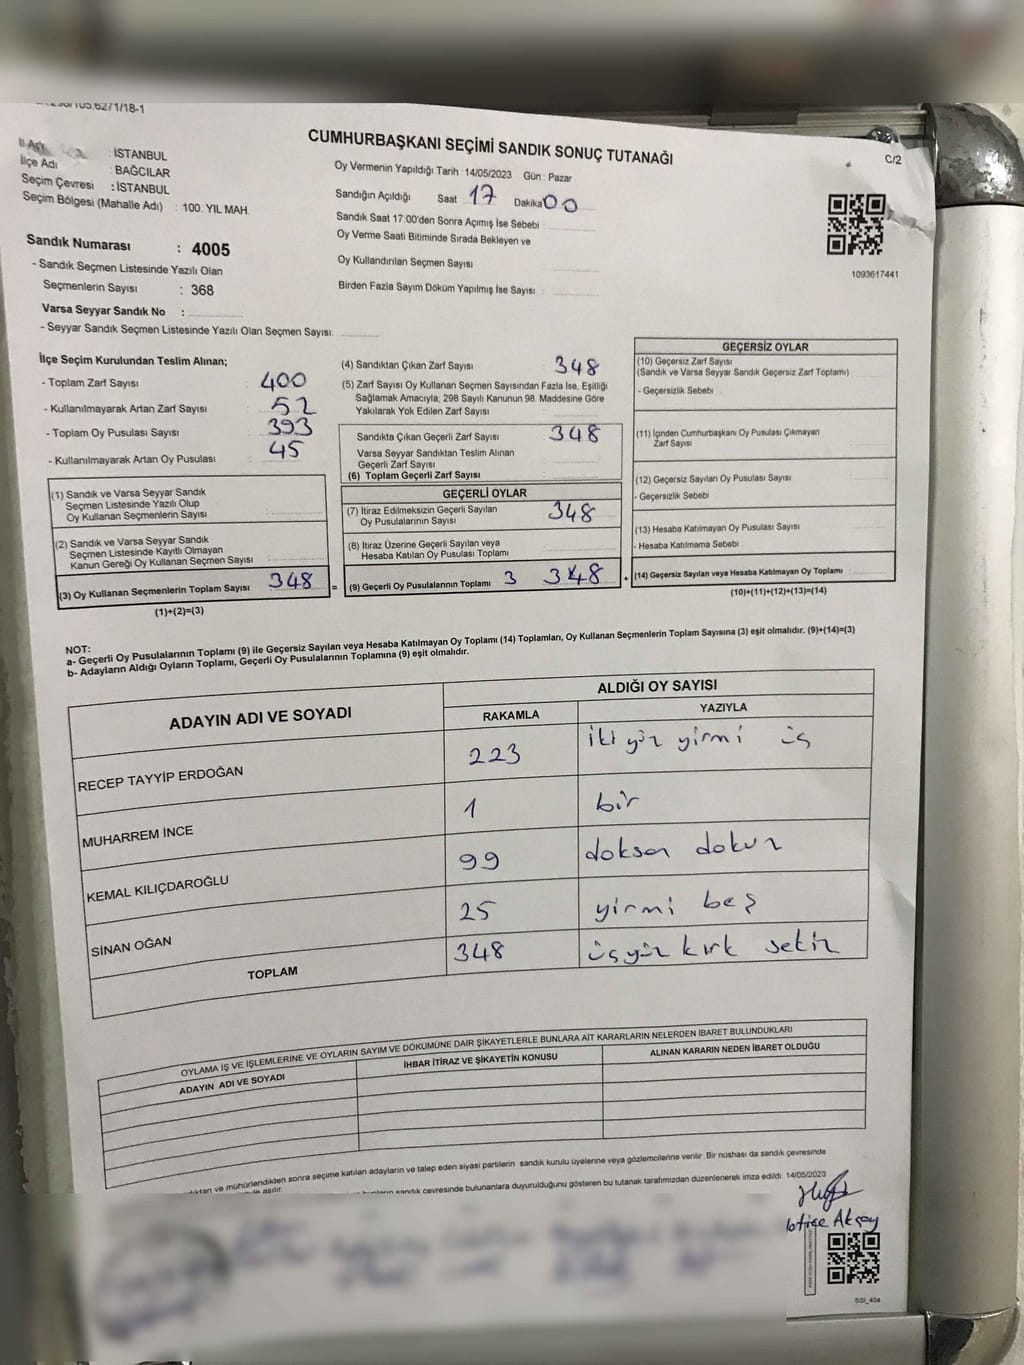 298/105,6271/18-1
CUMHURBAŞKANI SEÇİMİ SANDIK SONUÇ TUTANAĞI
C/2
İl Adı : İSTANBUL
İlçe Adı : BAĞCILAR
Seçim Çevresi : İSTANBUL
Seçim Bölgesi (Mahalle Adı) : 100. YIL MAH.
Oy Vermenin Yapıldığı Tarih : 14/05/2023 Gün : Pazar
Sandığın Açıldığı Saat 17 Dakika 00
Sandık Saat 17:00'den Sonra Açımış İse Sebebi
Oy Verme Saati Bitiminde Sırada Bekleyen ve
Oy Kullandırılan Seçmen Sayısı
Birden Fazla Sayım Döküm Yapılmış İse Sayısı :
1093617441
Sandık Numarası : 4005
- Sandık Seçmen Listesinde Yazılı Olan
Seçmenlerin Sayısı : 368
Varsa Seyyar Sandık No :
- Seyyar Sandık Seçmen Listesinde Yazılı Olan Seçmen Sayısı:
İlçe Seçim Kurulundan Teslim Alınan;
- Toplam Zarf Sayısı : 400
- Kullanılmayarak Artan Zarf Sayısı : 52
- Toplam Oy Pusulası Sayısı : 393
- Kullanılmayarak Artan Oy Pusulası : 45
(1) Sandık ve Varsa Seyyar Sandık
Seçmen Listesinde Yazılı Olup
Oy Kullanan Seçmenlerin Sayısı :
(2) Sandık ve Varsa Seyyar Sandık
Seçmen Listesinde Kayıtlı Olmayan
Kanun Gereği Oy Kullanan Seçmen Sayısı :
(3) Oy Kullanan Seçmenlerin Toplam Sayısı : 348 =
(1)+(2)=(3)
(4) Sandıktan Çıkan Zarf Sayısı 348
(5) Zarf Sayısı Oy Kullanan Seçmen Sayısından Fazla İse, Eşitliği
Sağlamak Amacıyla; 298 Sayılı Kanunun 98. Maddesine Göre
Yakılarak Yok Edilen Zarf Sayısı
Sandıkta Çıkan Geçerli Zarf Sayısı 348
Varsa Seyyar Sandıktan Teslim Alınan
Geçerli Zarf Sayısı
(6) Toplam Geçerli Zarf Sayısı :
GEÇERLİ OYLAR
(7) İtiraz Edilmeksizin Geçerli Sayılan
Oy Pusulalarının Sayısı : 348
(8) İtiraz Üzerine Geçerli Sayılan veya
Hesaba Katılan Oy Pusulası Toplamı
(9) Geçerli Oy Pusulalarının Toplamı 3 348 +
GEÇERSİZ OYLAR
(10) Geçersiz Zarf Sayısı
(Sandık ve Varsa Seyyar Sandık Geçersiz Zarf Toplamı)
- Geçersizlik Sebebi :
(11) İçinden Cumhurbaşkanı Oy Pusulası Çıkmayan
Zarf Sayısı
(12) Geçersiz Sayılan Oy Pusulası Sayısı
- Geçersizlik Sebebi :
(13) Hesaba Katılmayan Oy Pusulası Sayısı
- Hesaba Katılmama Sebebi :
(14) Geçersiz Sayılan veya Hesaba Katılmayan Oy Toplamı :
(10)+(11)+(12)+(13)=(14)
NOT:
a- Geçerli Oy Pusulalarının Toplamı (9) ile Geçersiz Sayılan veya Hesaba Katılmayan Oy Toplamı (14) Toplamları, Oy Kullanan Seçmenlerin Toplam Sayısına (3) eşit olmalıdır. (9)+(14)=(3)
b- Adayların Aldığı Oyların Toplamı, Geçerli Oy Pusulalarının Toplamına (9) eşit olmalıdır.
ADAYIN ADI VE SOYADI
ALDIĞI OY SAYISI
RAKAMLA YAZIYLA
RECEP TAYYİP ERDOĞAN 223 iki yüz yirmi üç
MUHARREM İNCE 1 bir
KEMAL KILIÇDAROĞLU 99 doksan dokuz
SİNAN OĞAN 25 yirmi beş
TOPLAM 348 üçyüz kırk sekiz
OYLAMA İŞ VE İŞLEMLERİNE VE OYLARIN SAYIM VE DÖKÜMÜNE DAİR ŞİKAYETLERLE BUNLARA AİT KARARLARIN NELERDEN İBARET BULUNDUKLARI
ADAYIN ADI VE SOYADI İHBAR İTİRAZ VE ŞİKAYETİN KONUSU ALINAN KARARIN NEDEN İBARET OLDUĞU
ve mühürlendikten sonra seçime katılan adayların ve talep eden siyasi partilerin sandık kurulu üyelerine veya gözlemcilerine verilir. Bir nüshası da sandık çevresinde
asılır. sandık çevresinde bulunanlara duyurulduğunu gösteren bu tutanak tarafımızdan düzenlenerek imza edildi. 14/05/2023
Akçay